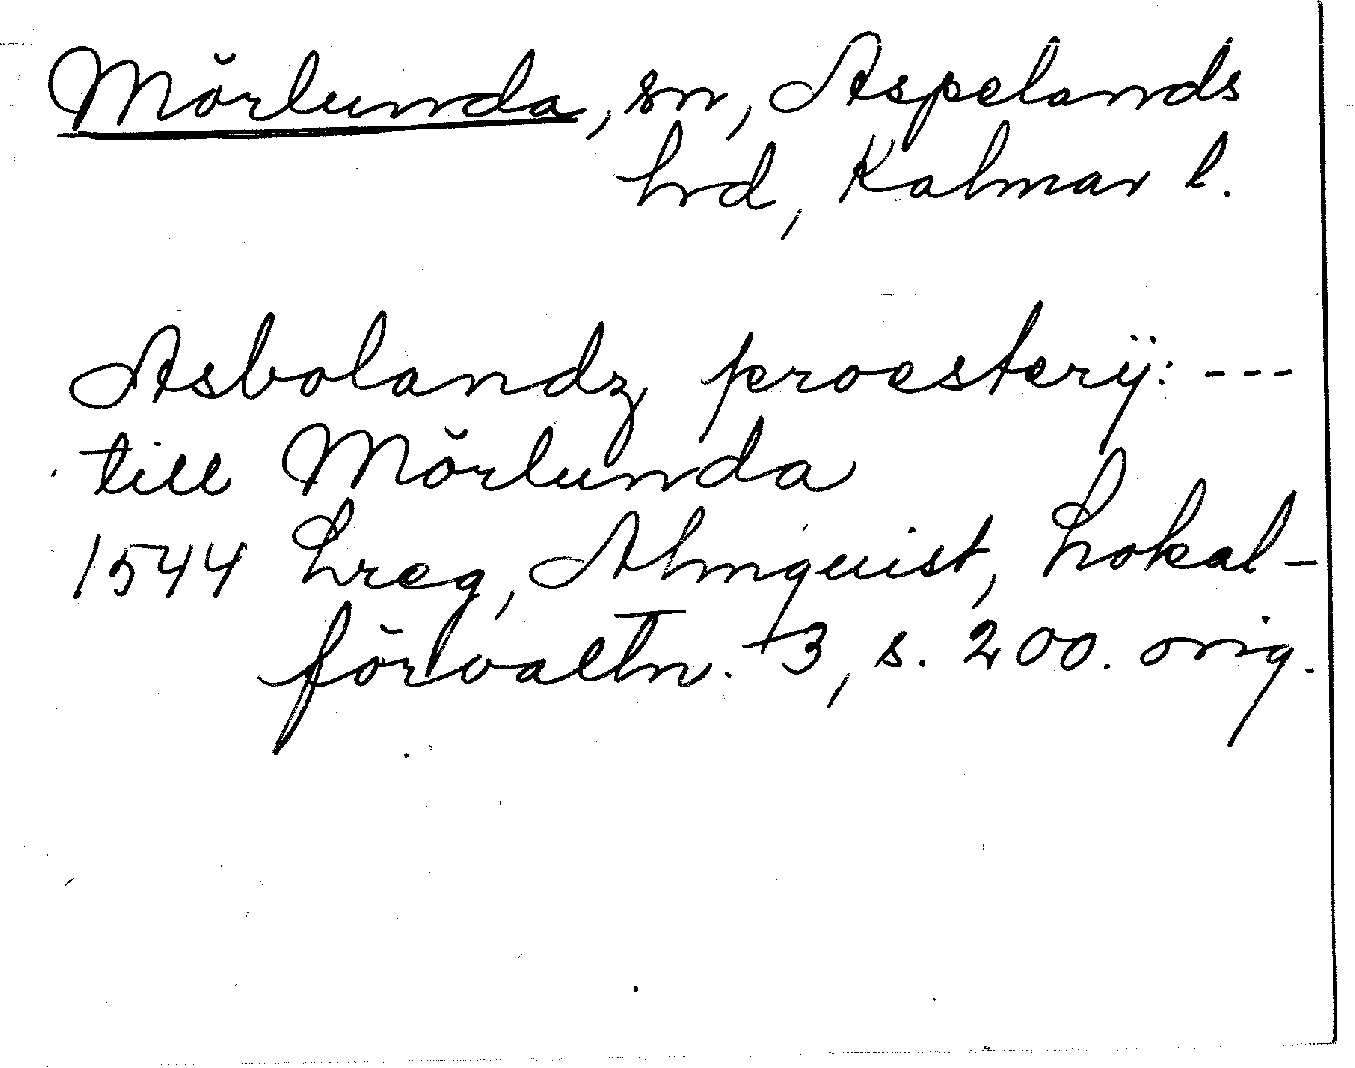 Mörlunda, sn, Aspelands
hrd, Kalmar l.
Asbolandz proesterÿ: ---
till Mörlunda
1544 Lreg, Almquist, Lokal-
förvaltn. 3, s. 200. orig.